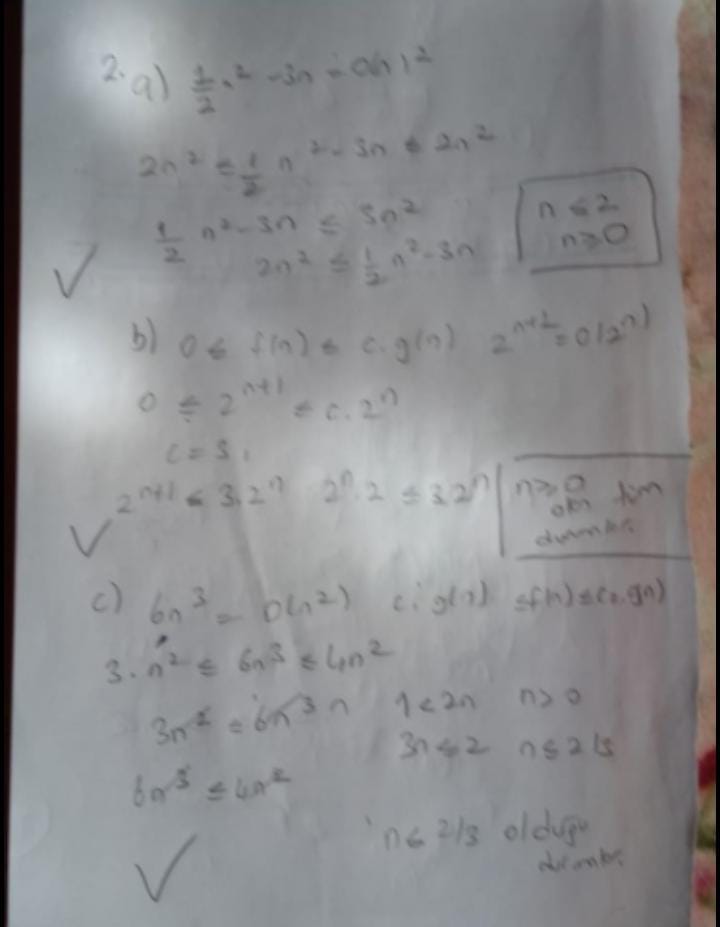 2. a) 1/2 n² - 3n = O(n)²
2n² ≤ 1/2 n² - 3n ≤ 2n²
1/2 n² - 3n ≤ 3n²
2n² ≤ 1/2 n² - 3n
n ≤ 2
n ≥ 0
b) 0 ≤ f(n) ≤ c.g(n) 2ⁿ⁺² = O(2ⁿ)
0 ≤ 2ⁿ⁺¹ ≤ c.2ⁿ
c = 3,
2ⁿ⁺¹ ≤ 3.2ⁿ 2ⁿ.2 ≤ 3.2ⁿ
n ≥ 0
olan tüm
c) 6n³ = O(n²)
3.n² ≤ 6n³ ≤ 4n²
3n² ≤ 6n³ n 1 < 2n n > 0
3n ≤ 2 n ≤ 2/3
6n³ ≤ 4n²
n ≤ 2/3 olduğu